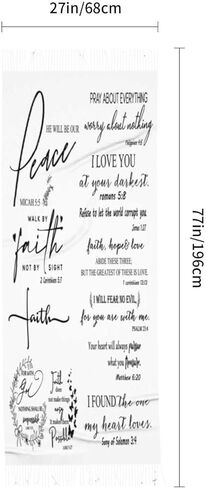 27in/68cm
77in/196cm
HE WILL BE OUR
Peace
MICAH 5:5
WALK BY
faith
NOT BY SIGHT
2 Corinthians 5:7
faith
WITH
God
NOTHING SHALL BE
Faith
does
not make things
easy
It makes them
Possible
LUKE 1:37
PRAY ABOUT EVERYTHING
worry about nothing
Philippians 4:6
I LOVE YOU
at your darkest.
romans 5:8
Refuse to let the world corrupt you
James 1:27
faith, hope & love
ABIDE THESE THREE;
BUT THE GREATEST OF THESE IS LOVE.
1 corinthians 13:13
I WILL FEAR NO EVIL,
for you are with me.
PSALM 23:4
Your heart will always
what you
Matthew 6:20
I FOUND the one
my heart loves.
Song of Solomon 3:4